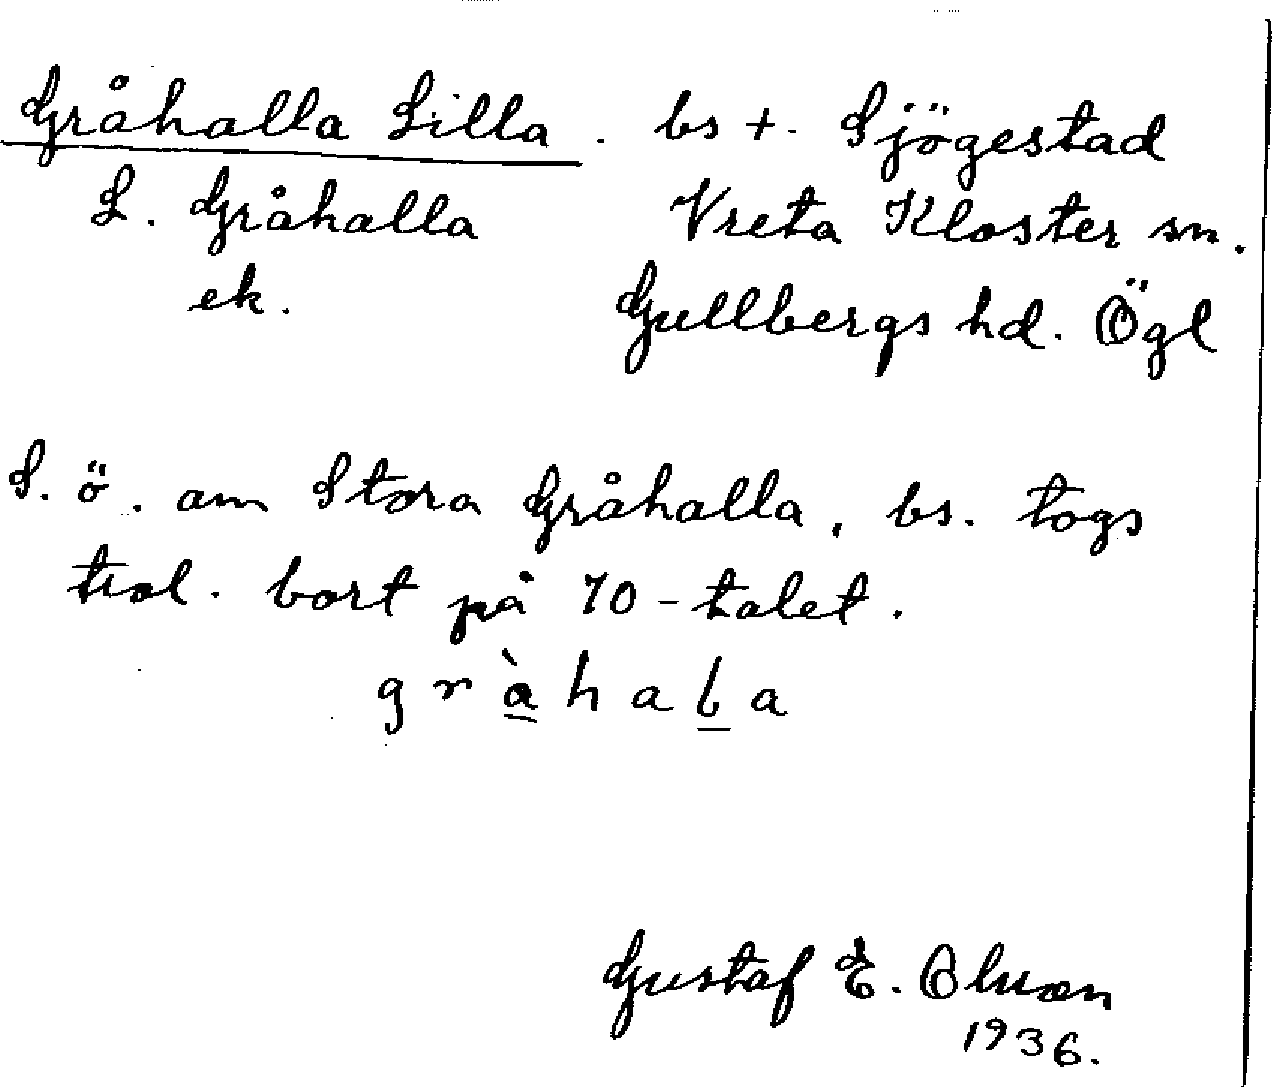 Gråhalla Lilla. bs +. Sjögestad
L. Gråhalla Vreta Kloster sn.
ek. Gullbergs hd. Ögl
S. ö. om Stora Gråhalla, bs. togs
trol. bort på 70-talet.
g r à h a l a
Gustaf E. Olsson
1936.